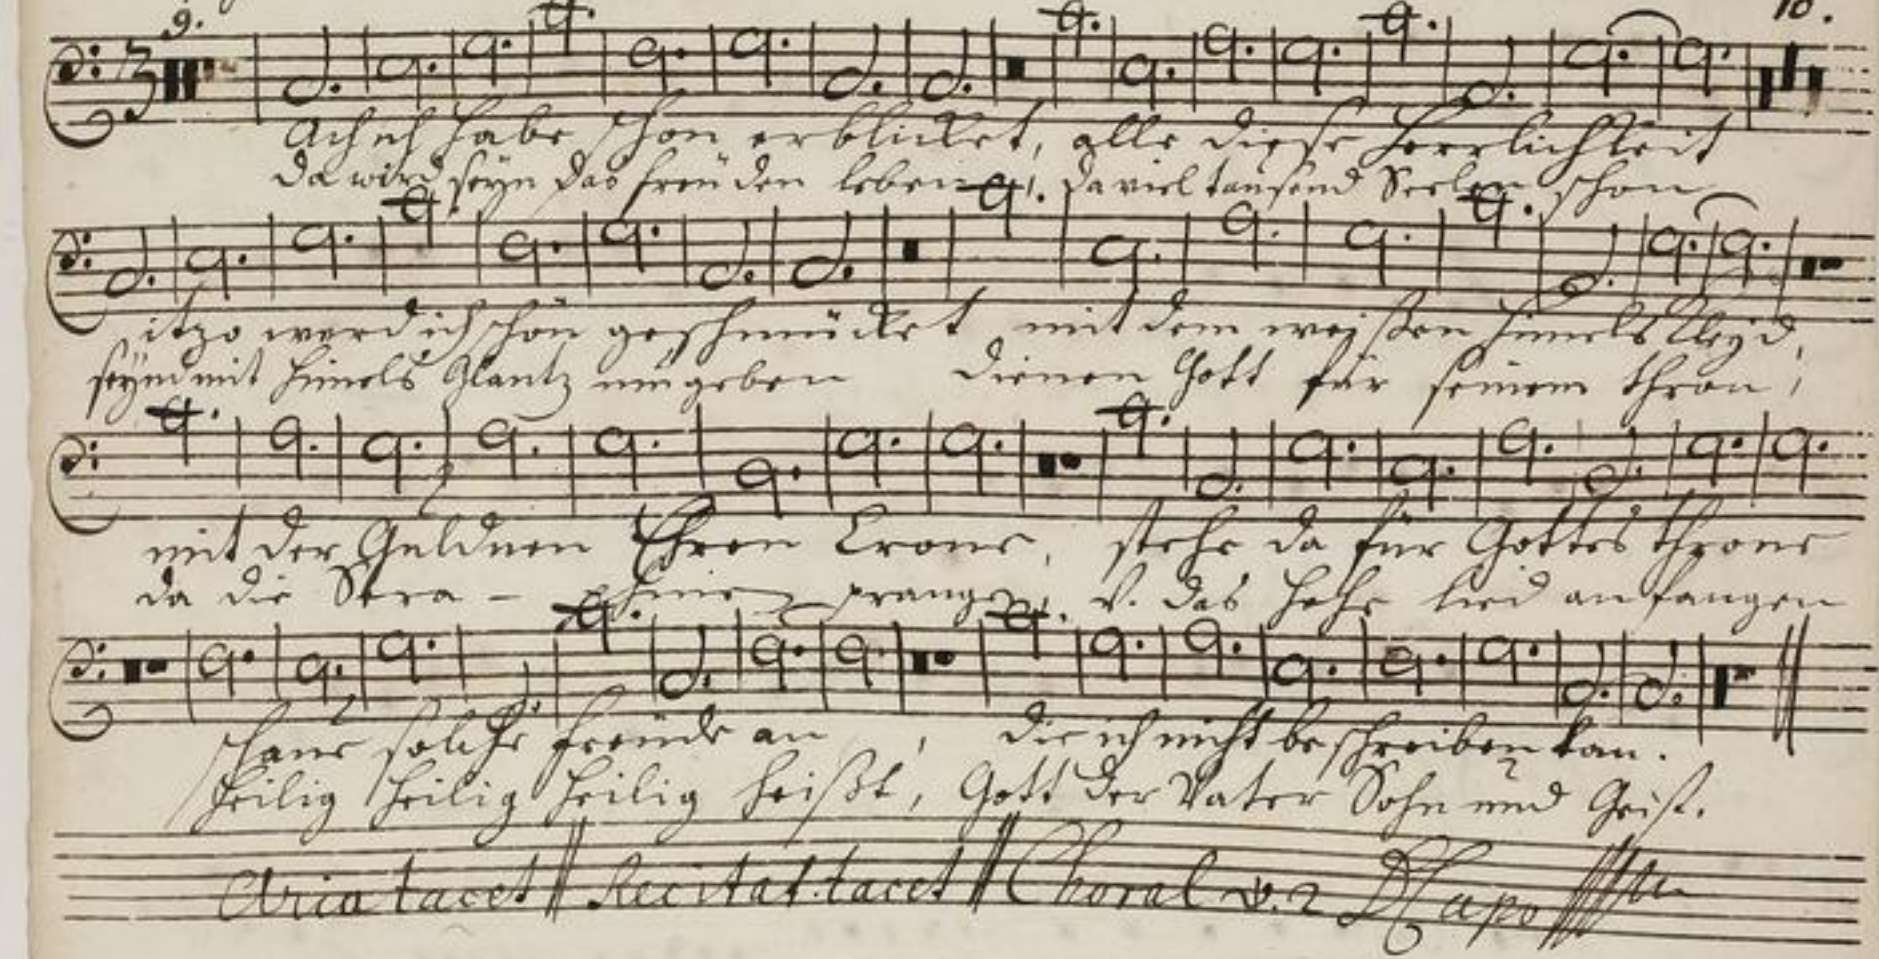 9. 10.
Ach ich habe schon erblicket, alle diese Herrlichkeit
Da wird seyn das freuden leben, da viel tausend Seelen schon
itzo werd ich schön geschmücket mit dem weißen Himels Kleyd,
seynd mit Himels Glantz umgeben dienen Gott für seinem Thron,
mit der Güldnen Ehren Crone, stehe da für Gottes Throne
da die Sera - phinen prangen, v. das hohe lied anfangen
schaue solche freude an, die ich nicht beschreiben kan.
heilig heilig heilig heißt, Gott der Vater Sohn und Geist.
Aria tacet Recitat. tacet Choral v. 2 D Capo